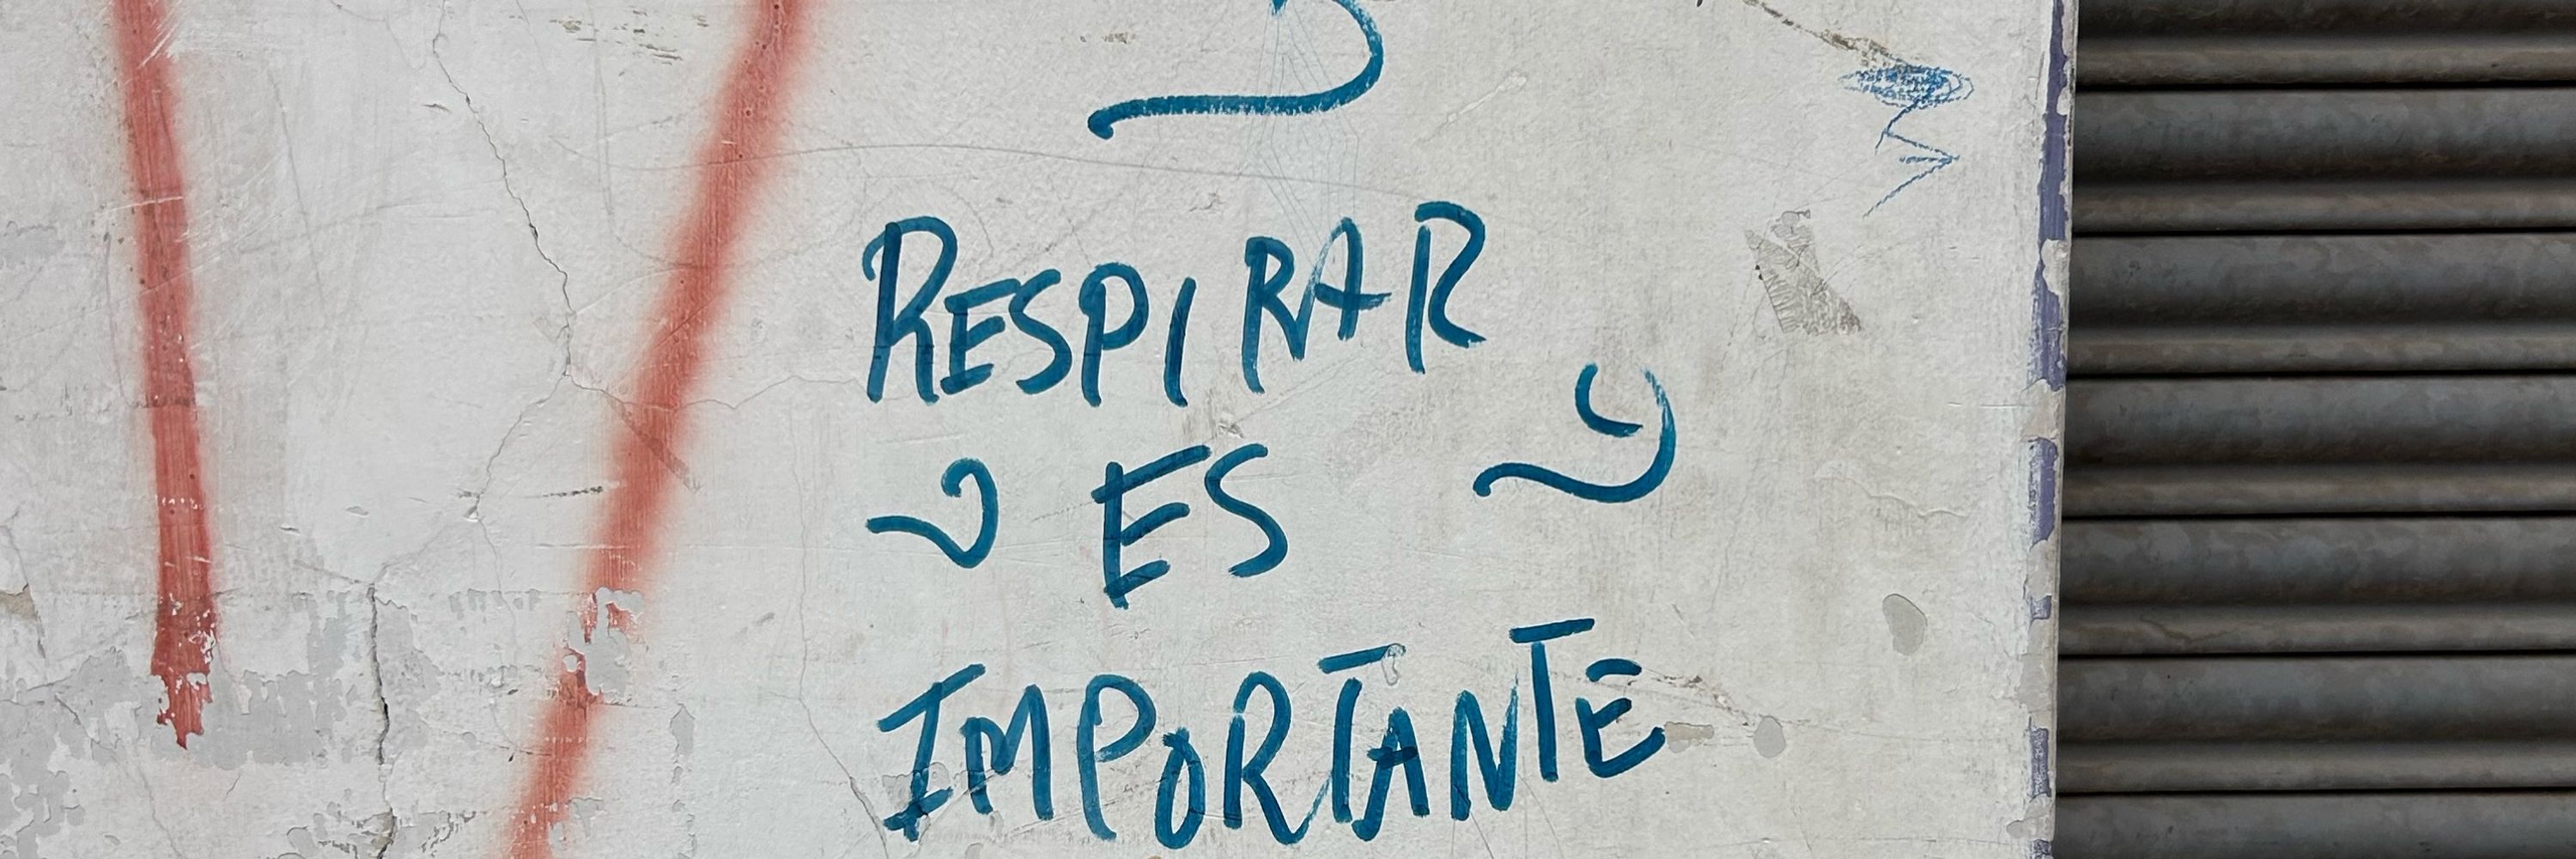 RESPIRAR
ES
IMPORTANTE